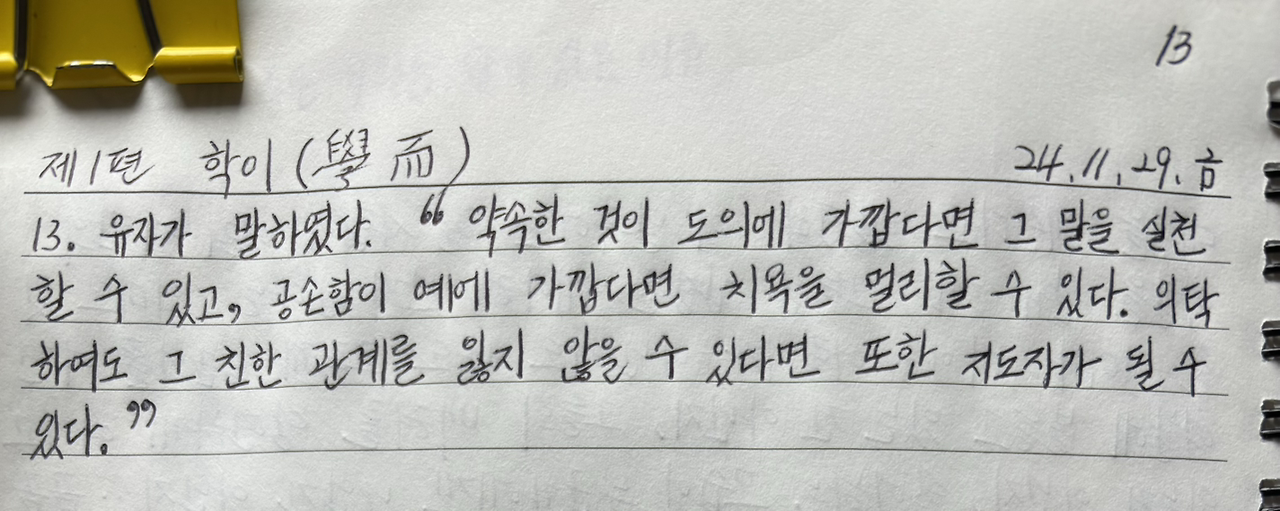 13
제1편 학이(學而) 24.11.29.금
13. 유자가 말하였다. “약속한 것이 도의에 가깝다면 그 말을 실천
할 수 있고, 공손함이 예에 가깝다면 치욕을 멀리할 수 있다. 의탁
하여도 그 친한 관계를 잃지 않을 수 있다면 또한 지도자가 될 수
있다.”